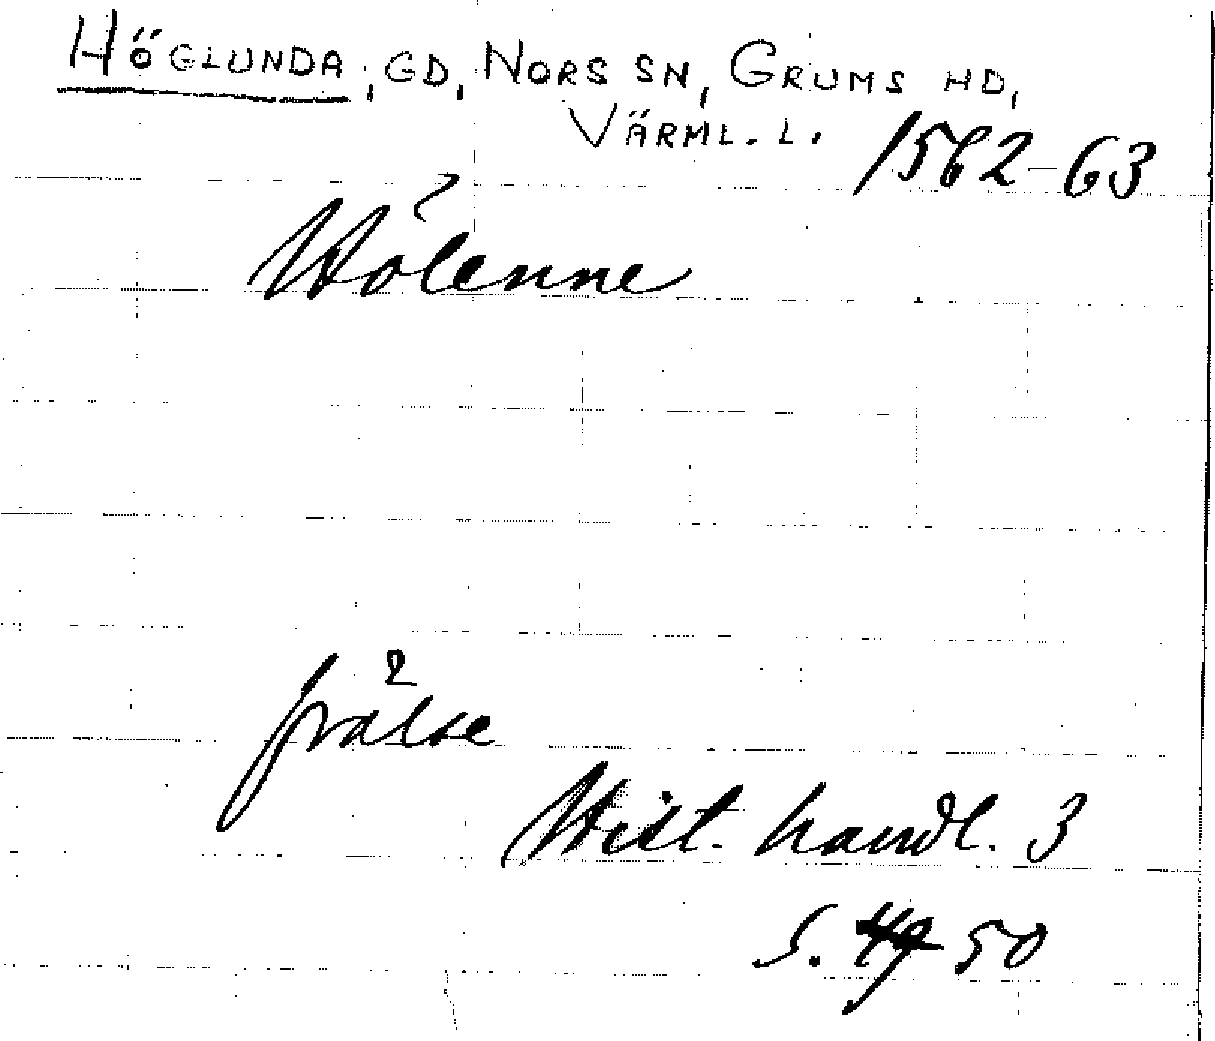 HÖGLUNDA, GD, NORS SN, GRUMS HD,
VÄRML. L.
1562-63
Hölenne
frälse
Hist. handl. 3
S. 50